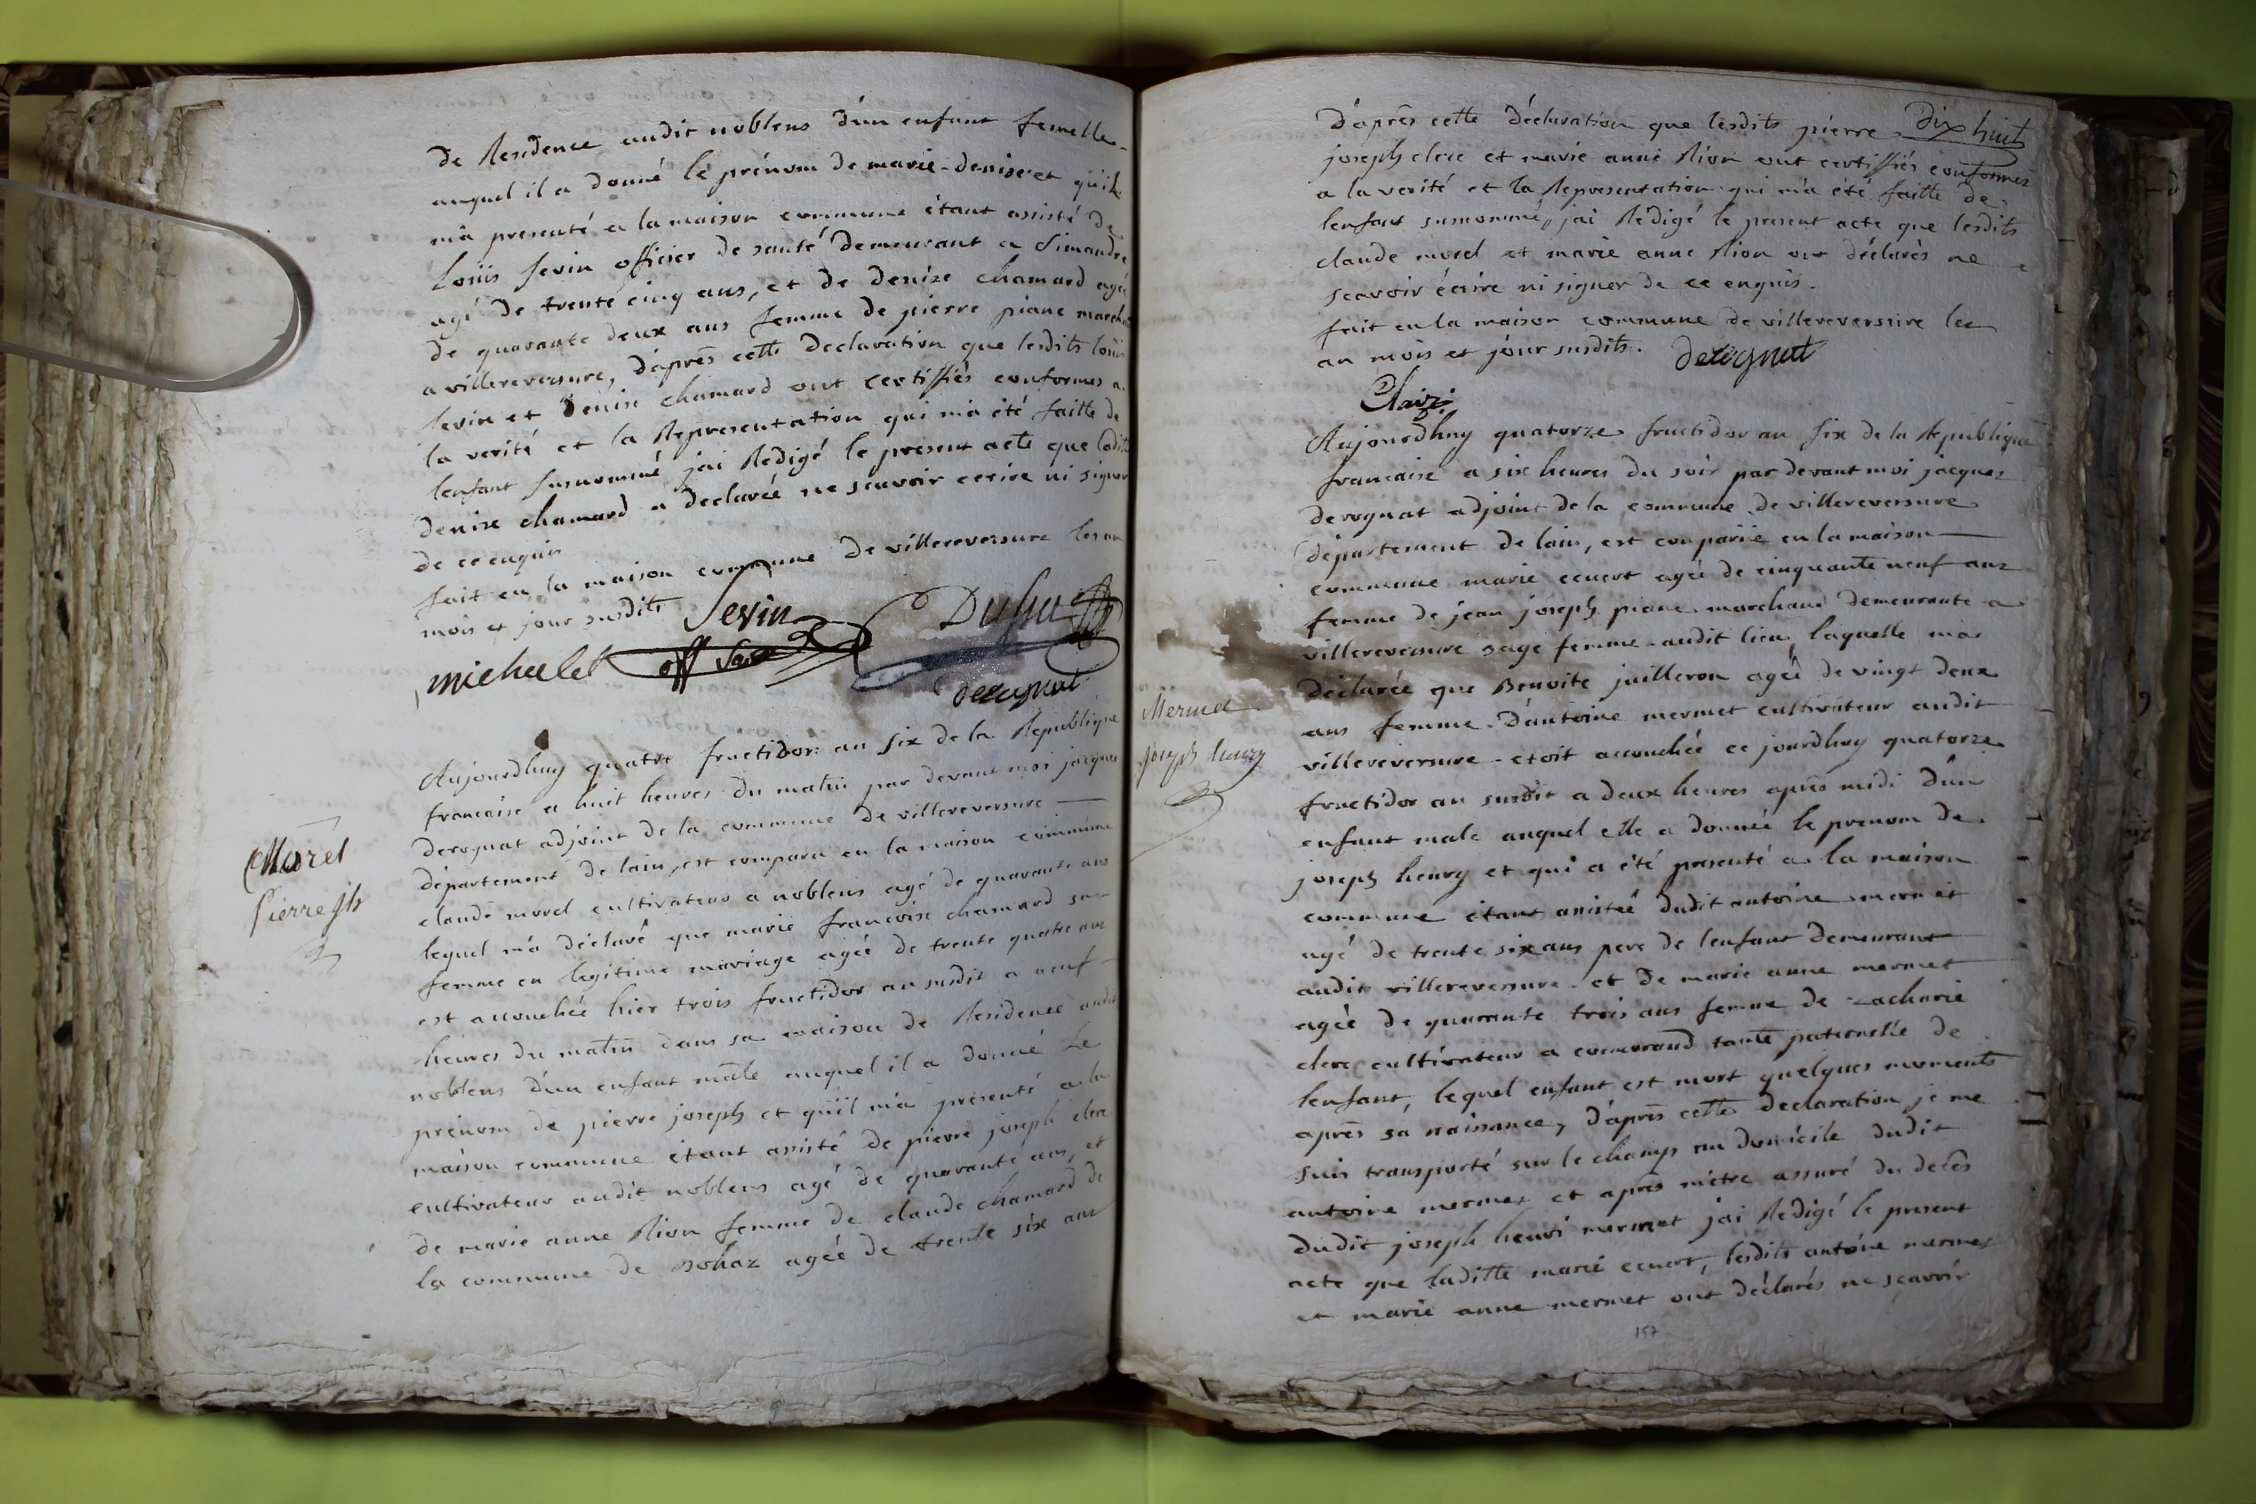 de Residence audit noblens d'un enfant femelle
auquel il a donné le prénom de marie-denise et qu'il
m'a presenté a la maison commune étant assisté de
Loüis sevin officier de santé demeurant a Simandre
agé de trente cinq ans, et de denize chamard agée
de quarante deux ans femme de pierre piane march
a villereversure, d'aprés cette declaration que lesdits loüis
sevin et denise chamard ont certiffiés conformes a
la verité et la Representation qui m'a été faitte de
lenfant surnommé jai Redigé le present acte que ladite
denize chamard a declarée ne scavoir ecrire ni signer
de ce enquis
fait en la maison commune de villereversure les an
mois et jour susdits
Sevin
off
michelet
derognat
Morel
pierre jh
Aujourdhuy quatre fructidor an six de la Republique
francaise a huit heures du matin par devant moi jacques
derognat adjoint de la commune de villereversure
département de lain, est comparu en la maison commune
claude morel cultivateur a noblens agé de quarante ans
lequel m'a déclaré que marie francoise chamard sa
femme en legitime mariage agée de trente quatre ans
est accouchée hier trois fructidor an susdit a neuf
heures du matin dans sa maison de Residence audit
noblens d'un enfant mâle auquel il a donné le
prénom de pierre joseph et qu'il m'a presenté a la
maison commune étant assisté de pierre joseph clerc
cultivateur audit noblens agé de quarante ans, et
de marie anne Rion femme de claude chamard de
la commune de Bohaz agée de trente six ans
dix huit
D'aprés cette déclaration que lesdits pierre
joseph clerc et marie anne Rion ont certiffiés conformes
a la verité et la Representation qui m'a été faitte de
lenfant surnommé, jai Rédigé le present acte que lesdits
claude morel et marie anne Rion ont déclarés ne
scavoir écrire ni signer de ce enquis.
fait en la maison commune de villereversure les
an mois et jour susdits. derognat
Mermet
joseph henry
Aujourdhuy quatorze fructidor an six de la Republique
francaise a six heures du soir par devant moi jacques
derognat adjoint de la commune de villereversure
département de lain, est comparüe en la maison
commune marie ecuert agée de cinquante neuf ans
femme de jean joseph piane marchand demeurante a
villereversure sage femme audit lieu, laquelle m'a
déclarée que Benoite juilleron agée de vingt deux
ans femme d'antoine mermet cultivateur audit
villereversure etoit accouchée ce jourdhuy quatorze
fructidor an susdit a deux heures aprés midi d'un
enfant male auquel elle a donnée le prenom de
joseph henry et qui a été presenté a la maison
commune étant assistée dudit antoine mermet
agé de trente six ans pere de lenfant demeurant
audit villereversure et de marie anne mermet
agée de quarante trois ans femme de zacharie
clerc cultivateur a tante paternelle de
lenfant, lequel enfant est mort quelques moments
aprés sa naissance, d'aprés cette declaration je me
suis transporté sur le champ au domicile dudit
antoine mermet et aprés m'etre assuré du decés
dudit joseph henri mermet jai Redigé le present
acte que ladite marie ecuert, lesdits antoine mermet
et marie anne mermet ont déclarés ne scavoir
157